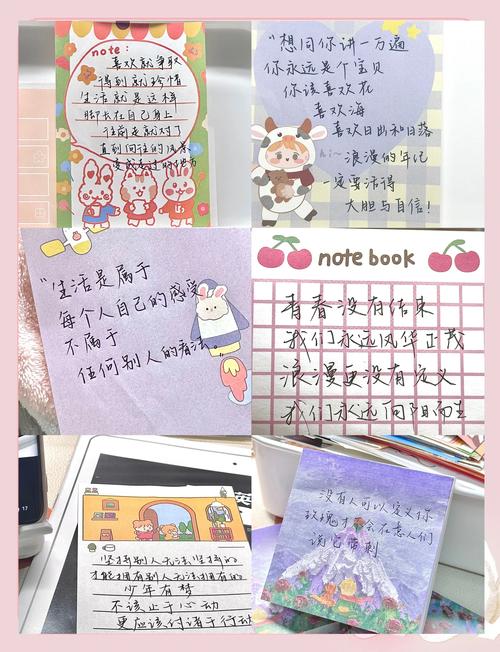 note:
喜欢就争取
得到就珍惜
生活就是这样
脚长在自己身上
往前走就对了
直到向往的风景
变成走过的地方
"想同你讲一万遍
你永远是个宝贝
你该喜欢花
喜欢海
喜欢日出和日落
浪漫的年纪
一定要活得
大胆与自信!
hi~
"生活是属于
每个人自己的感受
不属于
任何别人的看法。"
note book
青春没有结束
我们永远风华正茂
浪漫更没有定义
我们永远向阳而生
17
坚持别人无法坚持的
才能拥有别人无法拥有的
少年有梦
不该止于心动
更应该付诸于行动
没有人可以定义你
玫瑰才不会在意人们
说它带刺